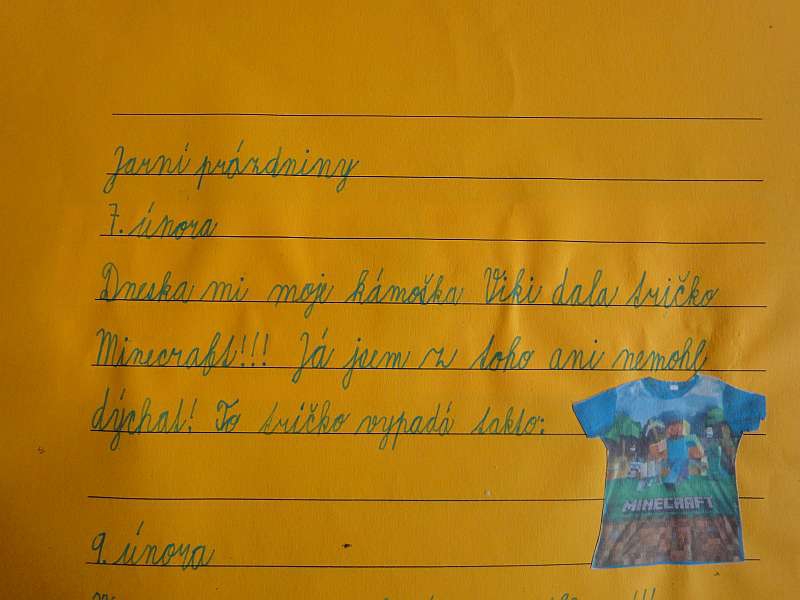 Jarní prázdniny
7. února
Dneska mi moje kámoška Viki dala tričko
Minecraft!!! Já jsem z toho ani nemohl
dýchat! To tričko vypadá takto:
MINECRAFT
9. února